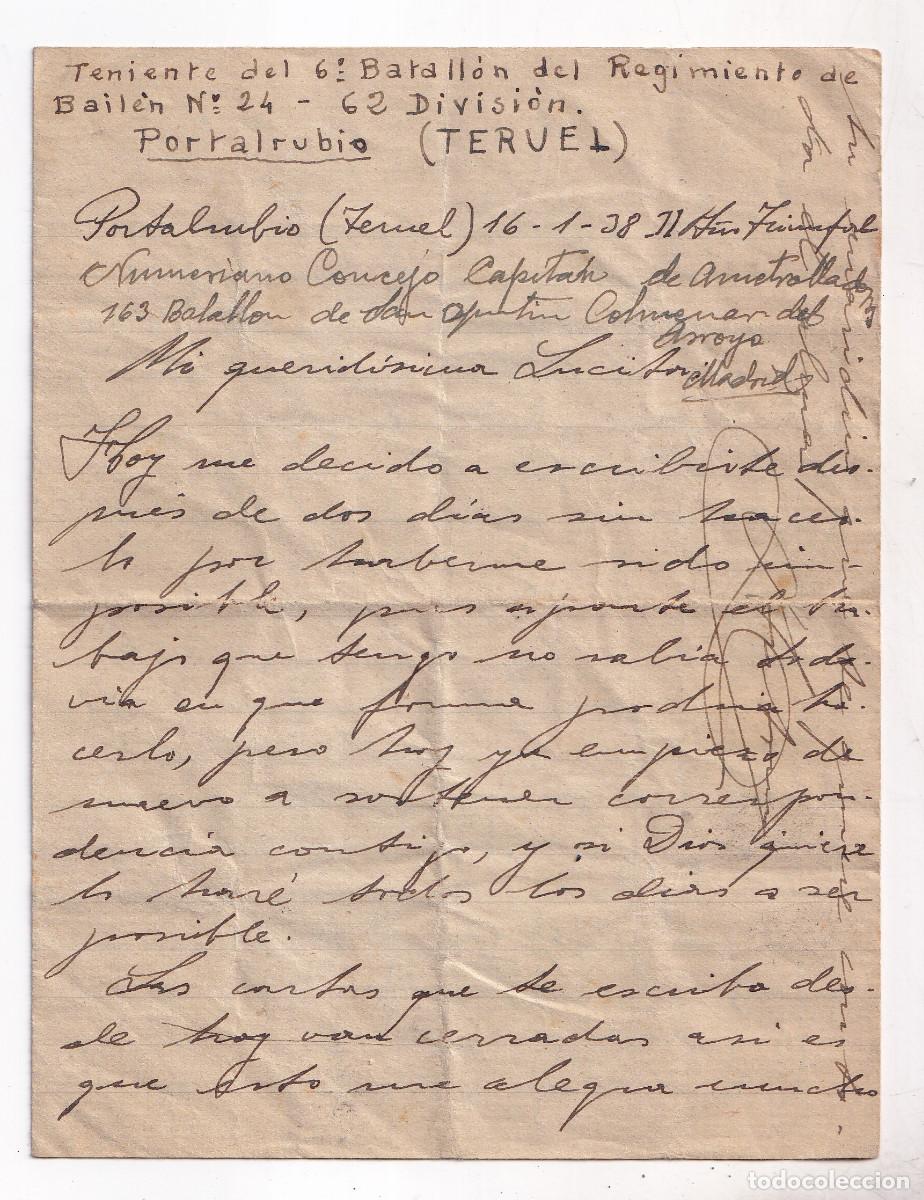 Teniente del 6º Batallón del Regimiento de
Bailén Nº 24 - 62 División.
Portalrubio (TERUEL)
Portalrubio (Teruel) 16-1-38 II Año Triunfal
Numeriano Concejo Capitán de Ametralladoras
163 Batallon de San Quintin Colmenar del
Arroyo
Madrid
Mi queridísima Lucita:
Hoy me decido a escribirte des-
pués de dos días sin hacer-
lo por haberme sido im-
posible, pues aparte el tra-
bajo que tengo no sabía toda-
vía en que forma podría ha-
cerlo, pero hoy ya empiezo de
nuevo a sostener correspon-
dencia contigo, y si Dios quiere
lo haré todos los dias a ser
posible.
Las cartas que te escriba des-
de hoy van cerradas asi es
que esto me alegra mucho
tu
todocoleccion